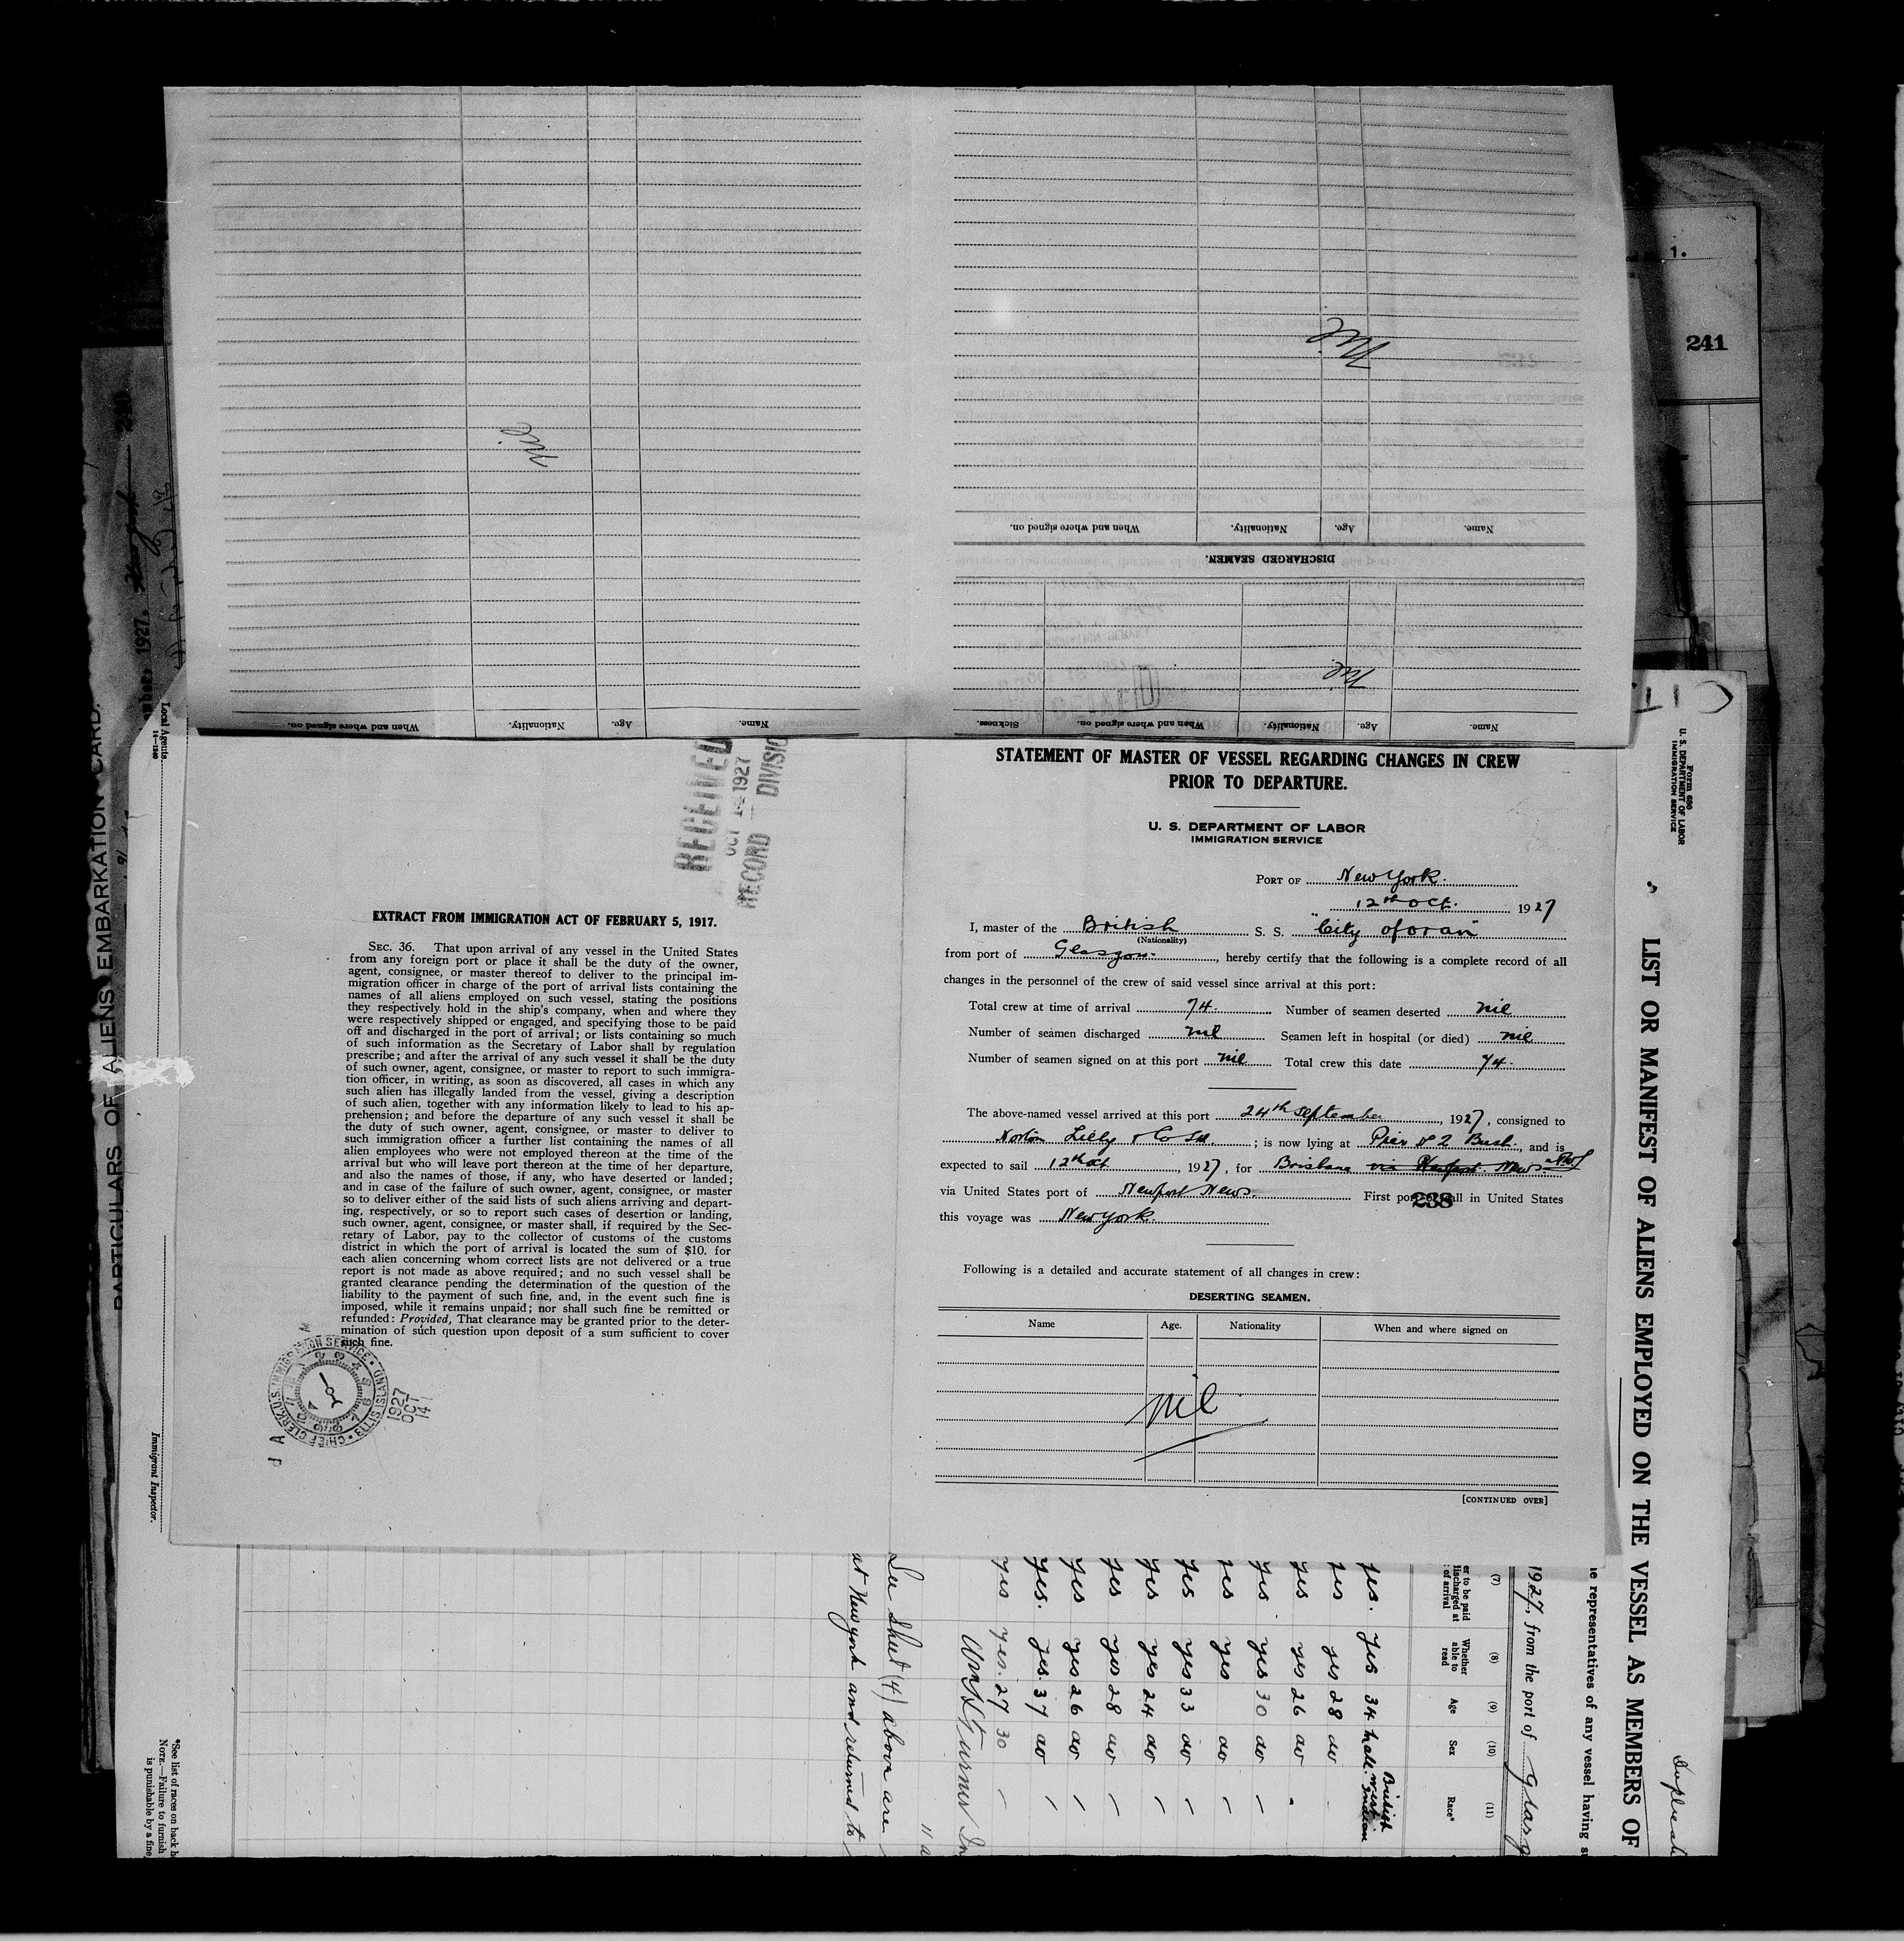 Name.
Age.
Nationality.
When and where signed on.
Sickness.
Nil
DISCHARGED SEAMEN.
Name.
Age.
Nationality.
When and where signed on.
Nil
Name.
Age.
Nationality.
When and where signed on.
Nil
1.
241
RECEIVED
OCT 1927
RECORD DIVISIO
EXTRACT FROM IMMIGRATION ACT OF FEBRUARY 5, 1917.
SEC. 36. That upon arrival of any vessel in the United States
from any foreign port or place it shall be the duty of the owner,
agent, consignee, or master thereof to deliver to the principal im-
migration officer in charge of the port of arrival lists containing the
names of all aliens employed on such vessel, stating the positions
they respectively hold in the ship's company, when and where they
were respectively shipped or engaged, and specifying those to be paid
off and discharged in the port of arrival; or lists containing so much
of such information as the Secretary of Labor shall by regulation
prescribe; and after the arrival of any such vessel it shall be the duty
of such owner, agent, consignee, or master to report to such immigra-
tion officer, in writing, as soon as discovered, all cases in which any
such alien has illegally landed from the vessel, giving a description
of such alien, together with any information likely to lead to his ap-
prehension; and before the departure of any such vessel it shall be
the duty of such owner, agent, consignee, or master to deliver to
such immigration officer a further list containing the names of all
alien employees who were not employed thereon at the time of the
arrival but who will leave port thereon at the time of her departure,
and also the names of those, if any, who have deserted or landed;
and in case of the failure of such owner, agent, consignee, or master
so to deliver either of the said lists of such aliens arriving and depart-
ing, respectively, or so to report such cases of desertion or landing,
such owner, agent, consignee, or master shall, if required by the Sec-
retary of Labor, pay to the collector of customs of the customs
district in which the port of arrival is located the sum of $10. for
each alien concerning whom correct lists are not delivered or a true
report is not made as above required; and no such vessel shall be
granted clearance pending the determination of the question of the
liability to the payment of such fine, and, in the event such fine is
imposed, while it remains unpaid; nor shall such fine be remitted or
refunded: Provided, That clearance may be granted prior to the deter-
mination of such question upon deposit of a sum sufficient to cover
such fine.
CHIEF CLERK. U.S. IMMIGRATION SERVICE. ELLIS ISLAND
1927
OCT
14
STATEMENT OF MASTER OF VESSEL REGARDING CHANGES IN CREW
PRIOR TO DEPARTURE.
U. S. DEPARTMENT OF LABOR
IMMIGRATION SERVICE
PORT OF New York.
12th Oct. 1927
I, master of the British S. S. "City of Oran"
(Nationality)
from port of Glasgow, hereby certify that the following is a complete record of all
changes in the personnel of the crew of said vessel since arrival at this port:
Total crew at time of arrival 74. Number of seamen deserted nil
Number of seamen discharged nil Seamen left in hospital (or died) nil
Number of seamen signed on at this port nil Total crew this date 74.
The above-named vessel arrived at this port 24th September, 1927, consigned to
Norton Lilly & Co Ltd; is now lying at Pier No 2 Bush., and is
expected to sail 12th Oct, 1927, for Brisbane via Newport News
via United States port of Newport News. First port of call in United States
238
this voyage was New York.
Following is a detailed and accurate statement of all changes in crew:
DESERTING SEAMEN.
Name Age. Nationality When and where signed on
nil
[CONTINUED OVER]
Form 680
U. S. DEPARTMENT OF LABOR
IMMIGRATION SERVICE
LIST OR MANIFEST OF ALIENS EMPLOYED ON THE VESSEL AS MEMBERS OF
Duplicate
representatives of any vessel having
1927, from the port of Glasg
(7) (8) (9) (10) (11)
er to be paid
discharged at
of arrival
Whether
able to
read
Age
Sex
Race*
yes. yes 34 Male. British West Indian
yes yes 28 do
yes yes 26 do
yes yes 30 do
yes yes do
yes yes 33 do
yes yes 24 do
yes yes 28 do
yes yes 26 do
yes. yes. 37 do
yes yes. 27 30
above are
at New York and returned to
*See list of races on back
NOTE.—Failure to furnish
is punishable by a fine
PARTICULARS OF ALIENS EMBARKATION CARD.
1927.
240
Local Agents.
14—1240
Immigrant Inspector.